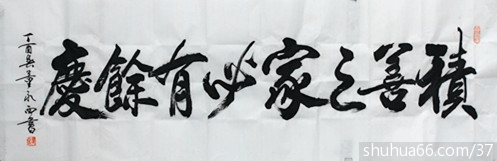 積善之家必有餘慶
丁酉吳童永西書
shuhua66.com/37